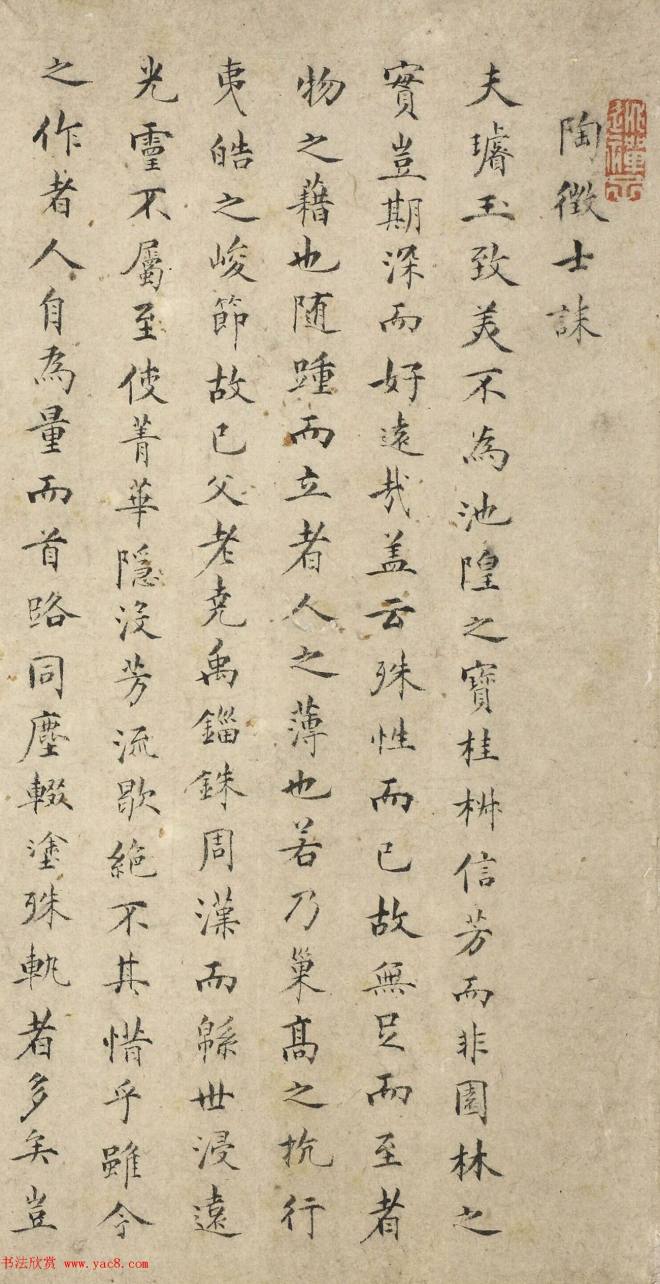 陶徵士誄
夫璿玉致美不為池隍之寶桂椒信芳而非園林之
實豈期深而好遠哉盖云殊性而已故無足而至者
物之藉也随踵而立者人之薄也若乃巢髙之抗行
夷皓之峻節故已父老堯禹錙銖周漢而緜世浸遠
光靈不屬至使菁華隱沒芳流歇絶不其惜乎雖今
之作者人自為量而首路同塵輟塗殊軌者多矣豈
书法欣赏 www.yac8.com